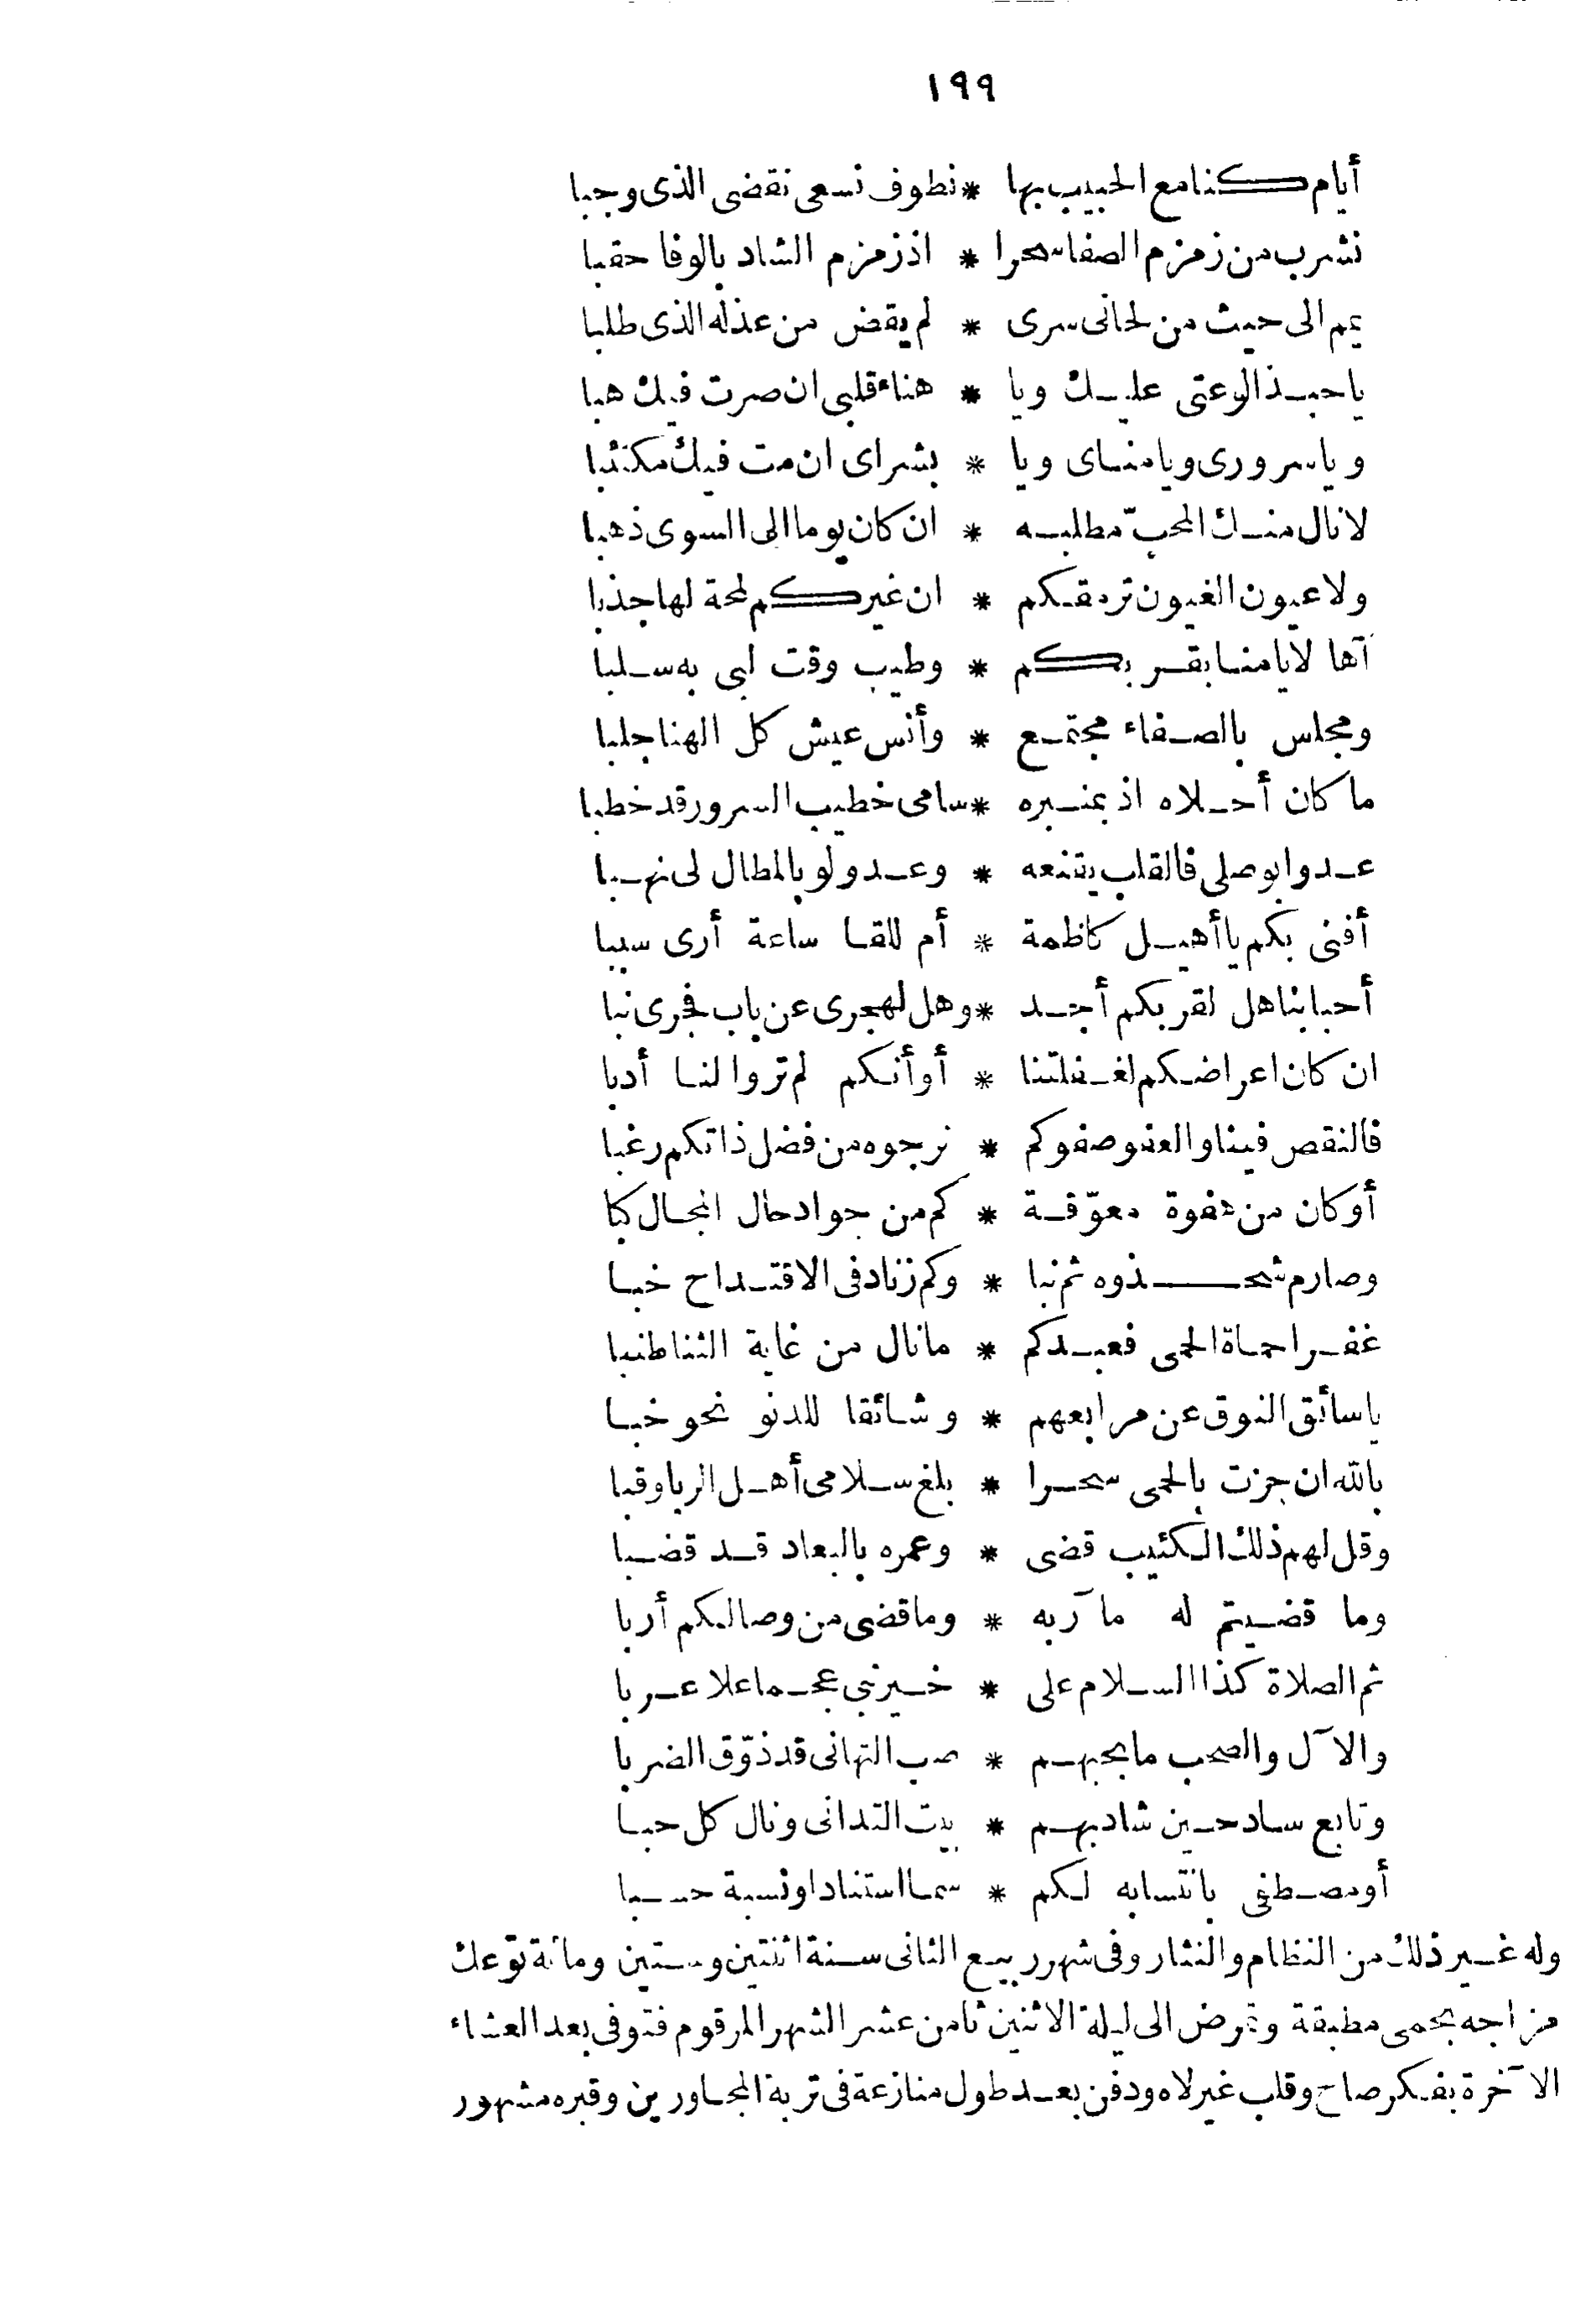 ١٩٩
أيام كنا مع الحبيب بها * نطوف نسعى نقضى الذى وجبا
نشرب من زمزم الصفا سحرا * اذ زمزم الشاد بالوفا حقبا
يمم الى حيث من لحانى سرى * لم يقض من عذله الذى طلبا
يا حبذا لوعتى عليك ويا * هناء قلبى ان صرت فيك هبا
ويا سرورى ويا منىاى ويا * بشراى ان مت فيك مكتئبا
لا نال منك المحبّ مطلبه * ان كان يوما الى السوى ذهبا
ولا عيون الغيون ترمقكم * ان غيركم لمحة لها جذبا
آها لايامنا بقربكم * وطيب وقت لبى به سلبا
ومجلس بالصفاء مجتمع * وأنس عيش كل الهنا جلبا
ما كان أحلاه اذ بمنبره * سامى خطيب السرور قد خطبا
عدوا بوصلى فالقلب يقنعه * وعد ولو بالمطال لى نهبا
أفنى بكم يا أهيل كاظمة * أم للقا ساعة أرى سببا
أحبابنا هل لقربكم أجد * وهل لهجرى عن باب فجرى نبا
ان كان اعراضكم لغفلتنا * أو أنكم لم تروا لنا أدبا
فالنقص فينا والعفو صفوكم * نرجوه من فضل ذاتكم رغبا
أو كان من هفوة معوّقة * كم من جواد حال المجال كبا
وصارم شحذوه ثم نبا * وكم زناد فى الاقتداح خبا
غفرا حماة الحمى فعبدكم * ما نال من غاية الثنا طنبا
يا سائق النوق عن مرابعهم * وشائقا للدنو نحو خبا
بالله ان جزت بالحمى سحرا * بلغ سلامى أهل الربا وقبا
وقل لهم ذلك الكئيب قضى * وعمره بالبعاد قد قضبا
وما قضيتم له مآربه * وما قضى من وصالكم أربا
ثم الصلاة كذا السلام على * خير نبى عجما علا عربا
والآل والصحب ما بحبهم * صب التهانى قد ذوّق الضربا
وتابع ساد حين شاد بهم * بيت التدانى ونال كل حبا
أو مصطفى بانتسابه لكم * سما استنادا ونسبة حسبا
وله غير ذلك من النظام والنثار وفى شهر ربيع الثانى سنة اثنتين وستين ومائة توعك
مزاجه بحمى مطبقة وتمرض الى ليلة الاثنين ثامن عشر الشهر المرقوم فتوفى بعد العشاء
الآخرة بفكر صاح وقلب غير لاه ودفن بعد طول منازعة فى تربة المجاورين وقبره مشهور